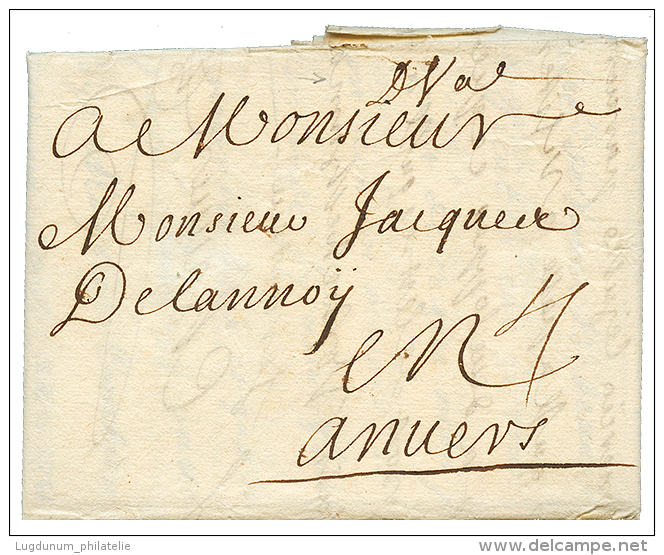 D Val
A Monsieur
Monsieur Jacques
Delannoÿ
en
anvers
Lugdunum_philatelie
delcampe.net